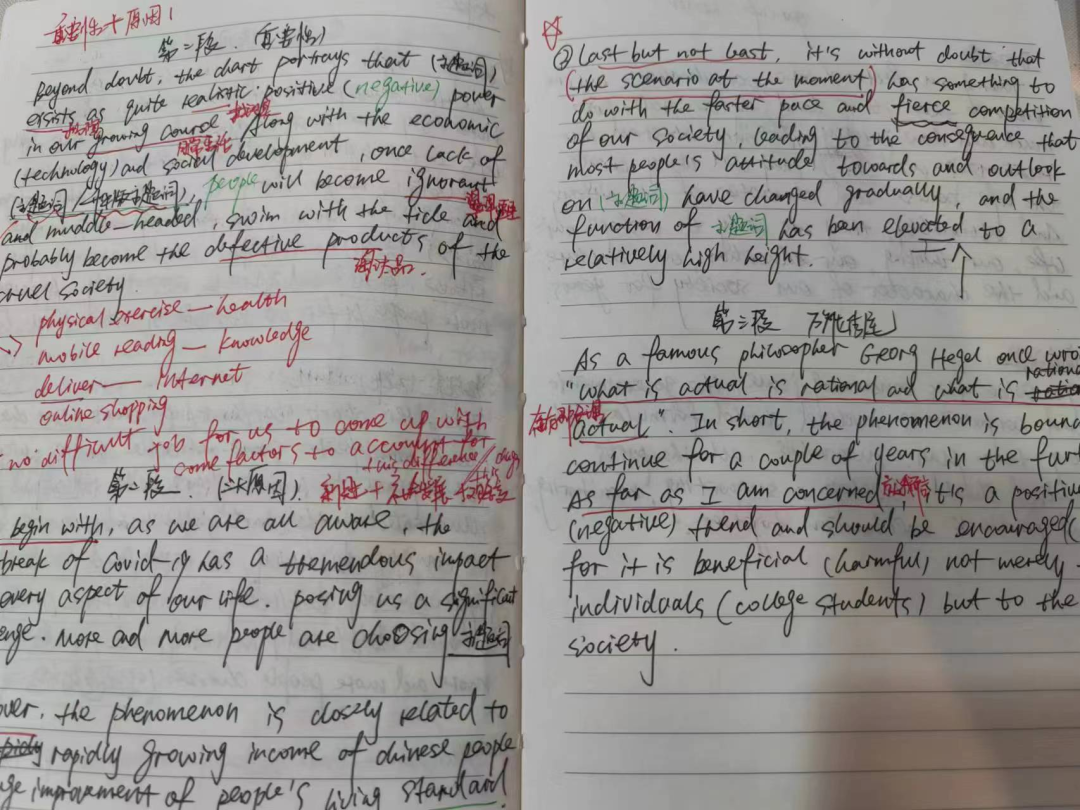 重要性+原因1
第二段.(重要性)
Beyond doubt, the chart portrays that (主题词)
exsists as quite realistic positive (negative) power
in our growing course. Along with the economic
日常生活
(technology) and social development, once lack of
(主题词/ 主题词), people will become ignorant
and muddle-headed, swim with the tide and
probably become the defective products of the
cruel society.
physical exercise — health
mobile reading — knowledge
deliver — Internet
online shopping
no difficult job for us to come up with
some factors to account for
this difference /
第二段.(三大原因).
begin with, as we are all aware, the
break of Covid-19 has a tremendous impact
every aspect of our life. posing us a significant
enge. More and more people are choosing 主题词
over, the phenomenon is closely related to
rapidly growing income of chinese people
ge improvment of people's living standard
② Last but not least, it's without doubt that
(the scenario at the moment) has something to
do with the faster pace and fierce competition
of our society, leading to the consequence that
most people's attitude towards and outlook
on (主题词) have changed gradually, and the
function of 主题词 has been elevated to a
relatively high height.
第三段
As a famous philosopher Georg Hegel once wro
"What is actual is rational and what is rational
actual". In short, the phenomenon is bound
continue for a couple of years in the fur
As far as I am concerned, it is a positive
(negative) trend and should be encouraged(
for it is beneficial (harmful) not merely
individuals (college students) but to the
society.